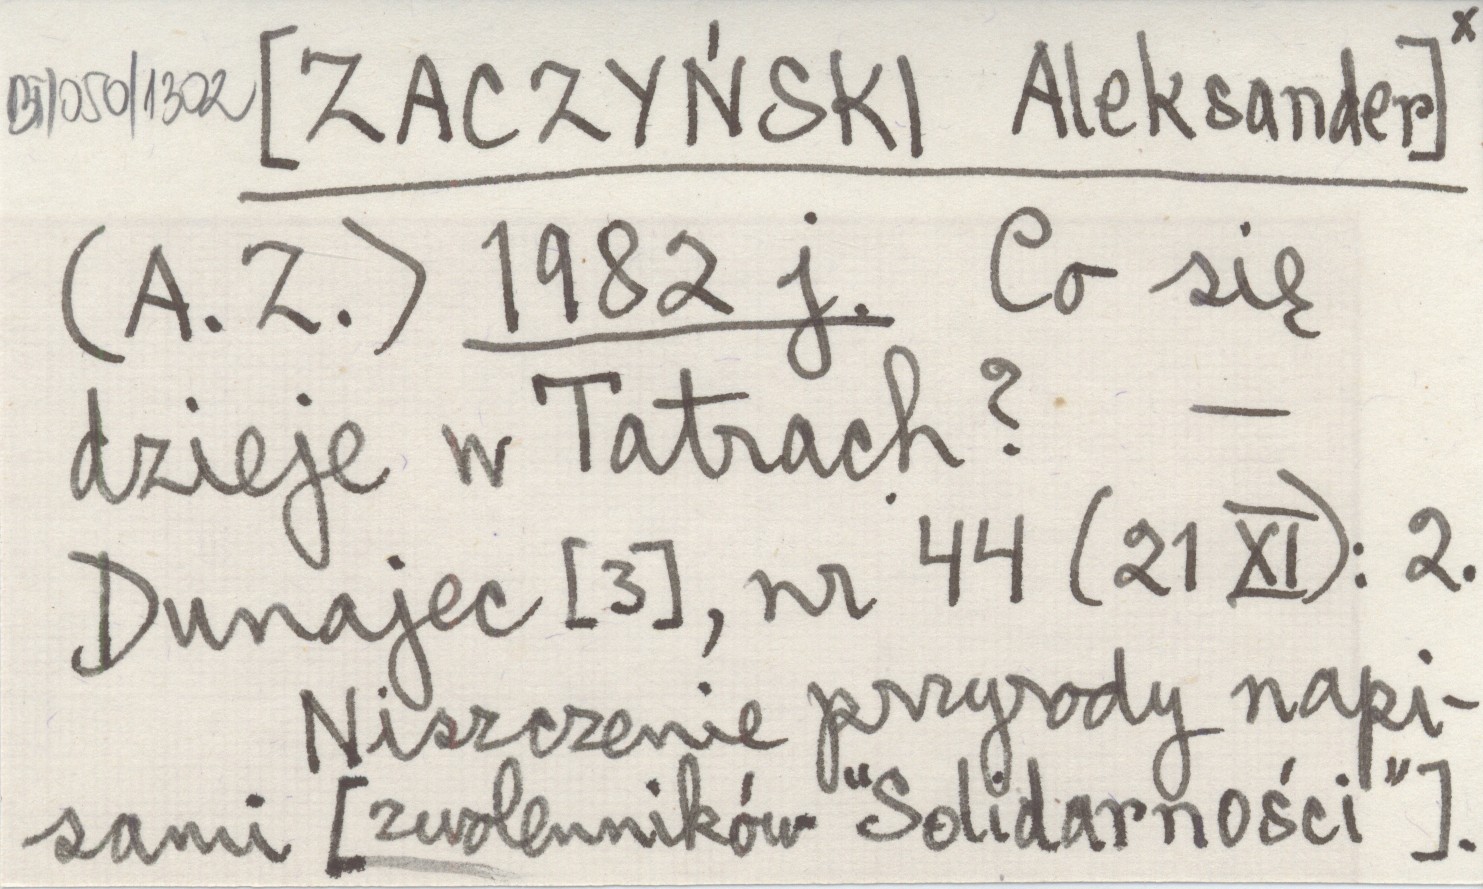 BI/050/1302 [ZACZYŃSKI Aleksander]x
(A.Z.) 1982 j. Co się
dzieje w Tatrach? —
Dunajec [3], nr 44 (21 XI): 2.
Niszczenie przyrody napi-
sami [zwolenników "Solidarności"].